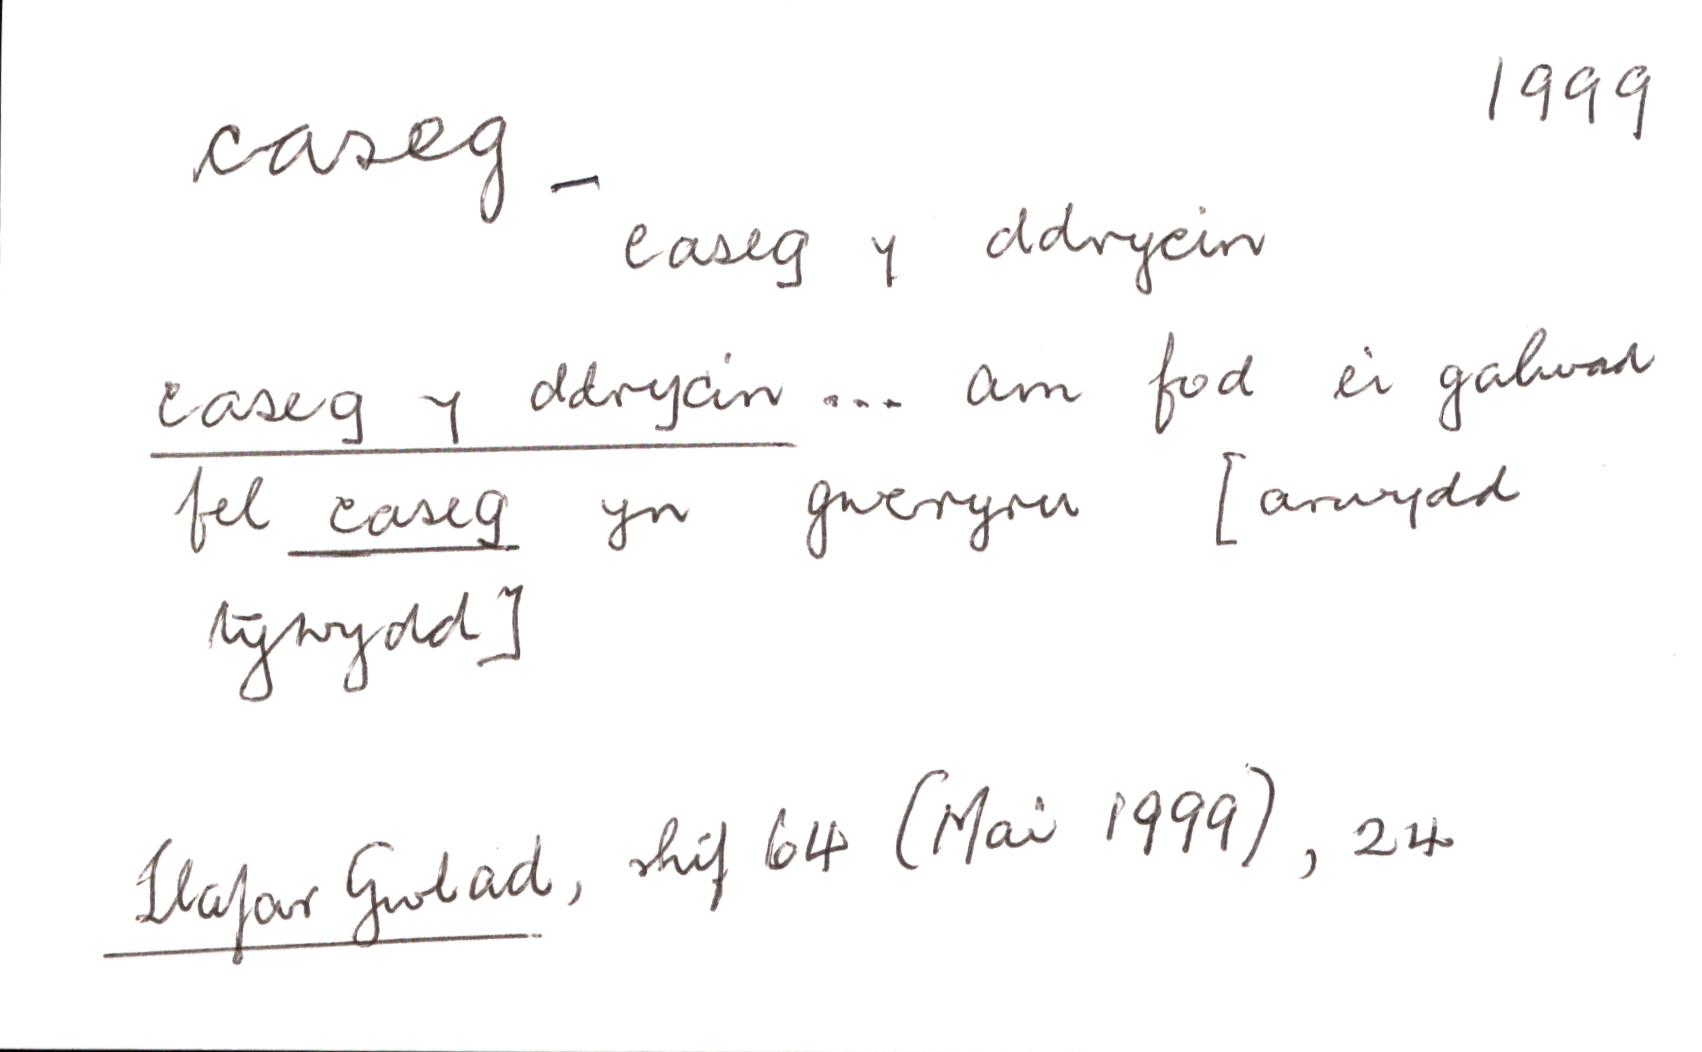 1999
caseg -
caseg y ddrycin
caseg y ddrycin ... am fod ei galwad
fel caseg yn gweryru [arwydd
tywydd]
Llafar Gwlad, rhif 64 (Mai 1999), 24